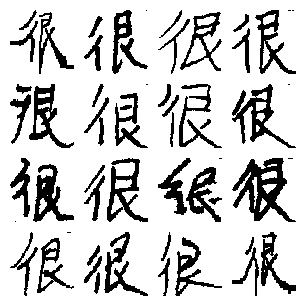 很很很很
很很很很
很很很很
很很很很